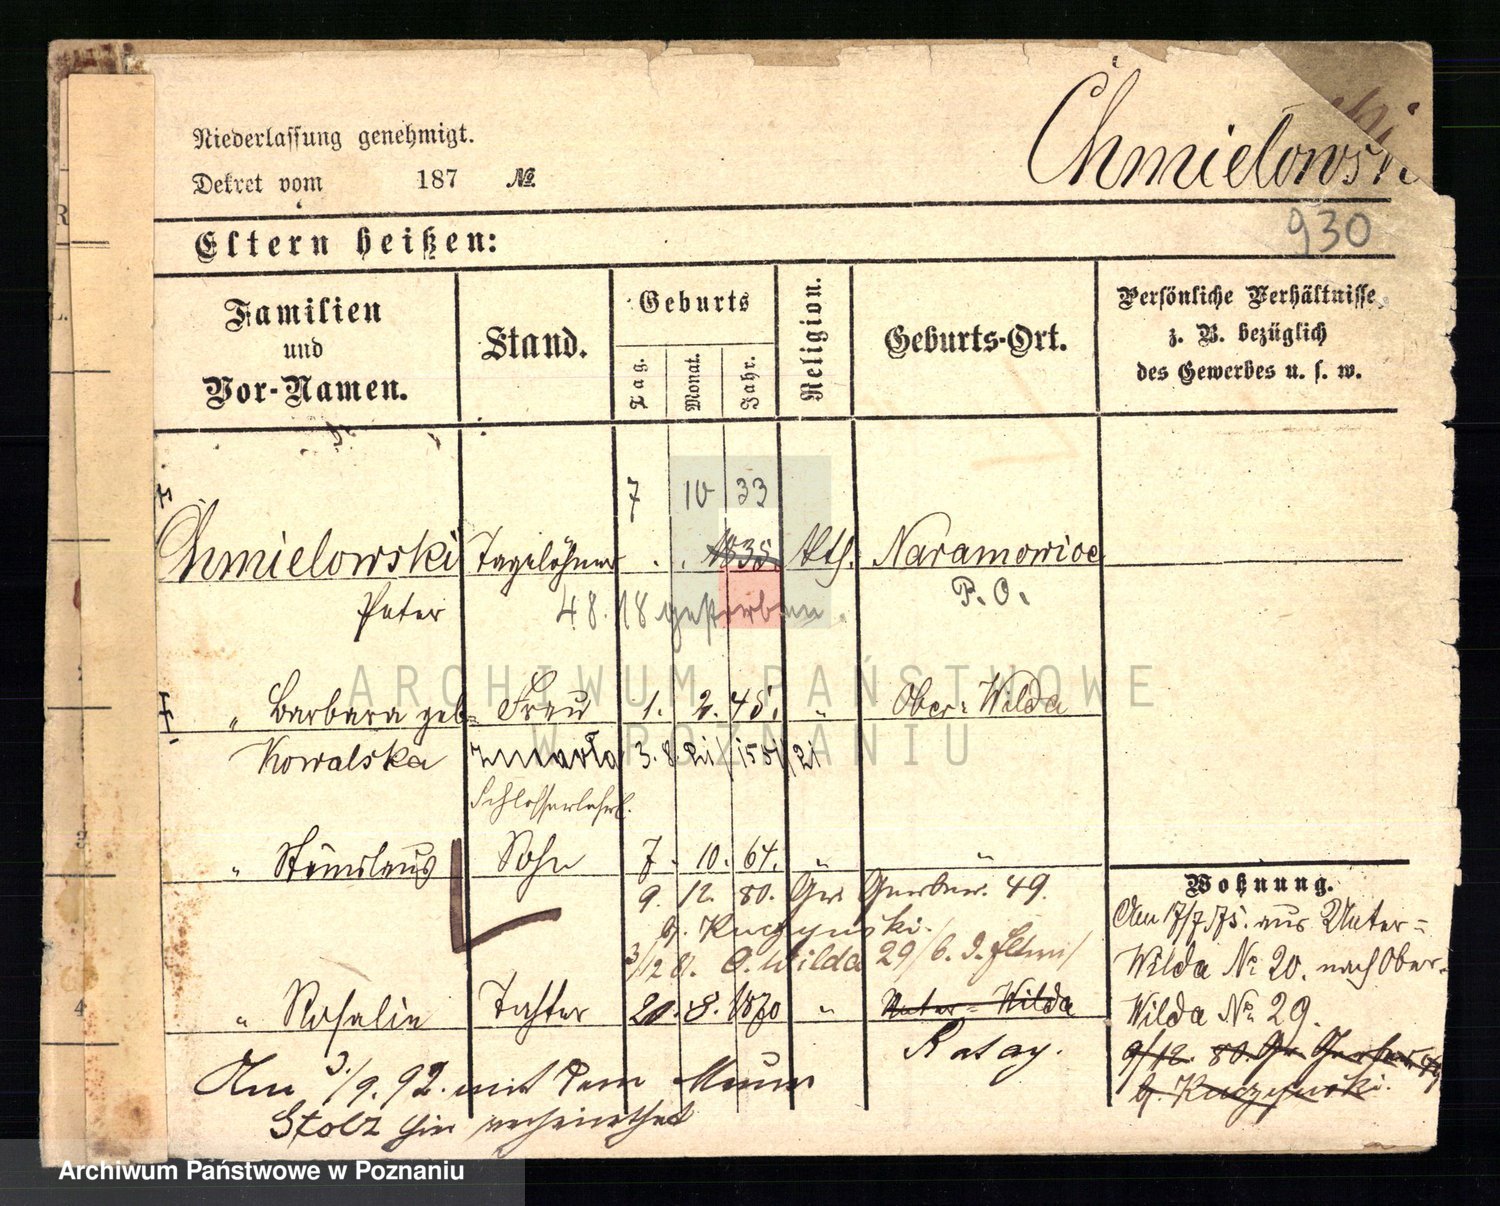 Niederlassung genehmigt.
Dekret vom 187 №
Chmielowski
930
Eltern heißen:
Familien
und
Vor-Namen.
Stand.
Geburts
Tag.
Monat.
Jahr.
Religion.
Geburts-Ort.
Persönliche Verhältnisse
z. B. bezüglich
des Gewerbes u. s. w.
7 10 33
Chmielowski Tagelöhner . . 1835 kth. Naramowice
Peter
P. O.
4 8. 18 gestorben.
" Barbara geb. Frau 1. 2. 45. " Ober-Wilda
Kowalska zmarła 3. 8.
Schlosserlehrl.
" Stanislaus Sohn 7. 10. 64. " "
9. 12. 80. Gr. Gerber. 49.
b. Kuczynski.
O. Wilda 29/6. d. Eltern
" Rosalie Tochter 20. 8. 1870 " Unter-Wilda
Ratay.
Am 3./9. 92. mit dem Maurer
Stolz hier verheirathet
Wohnung.
Am 17/7 75. aus Unter-
Wilda № 20. nach Ober-
Wilda № 29.
9/12. 80. Gr. Gerber 49
b. Kuczynski.
ARCHIWUM PAŃSTWOWE
W POZNANIU
Archiwum Państwowe w Poznaniu